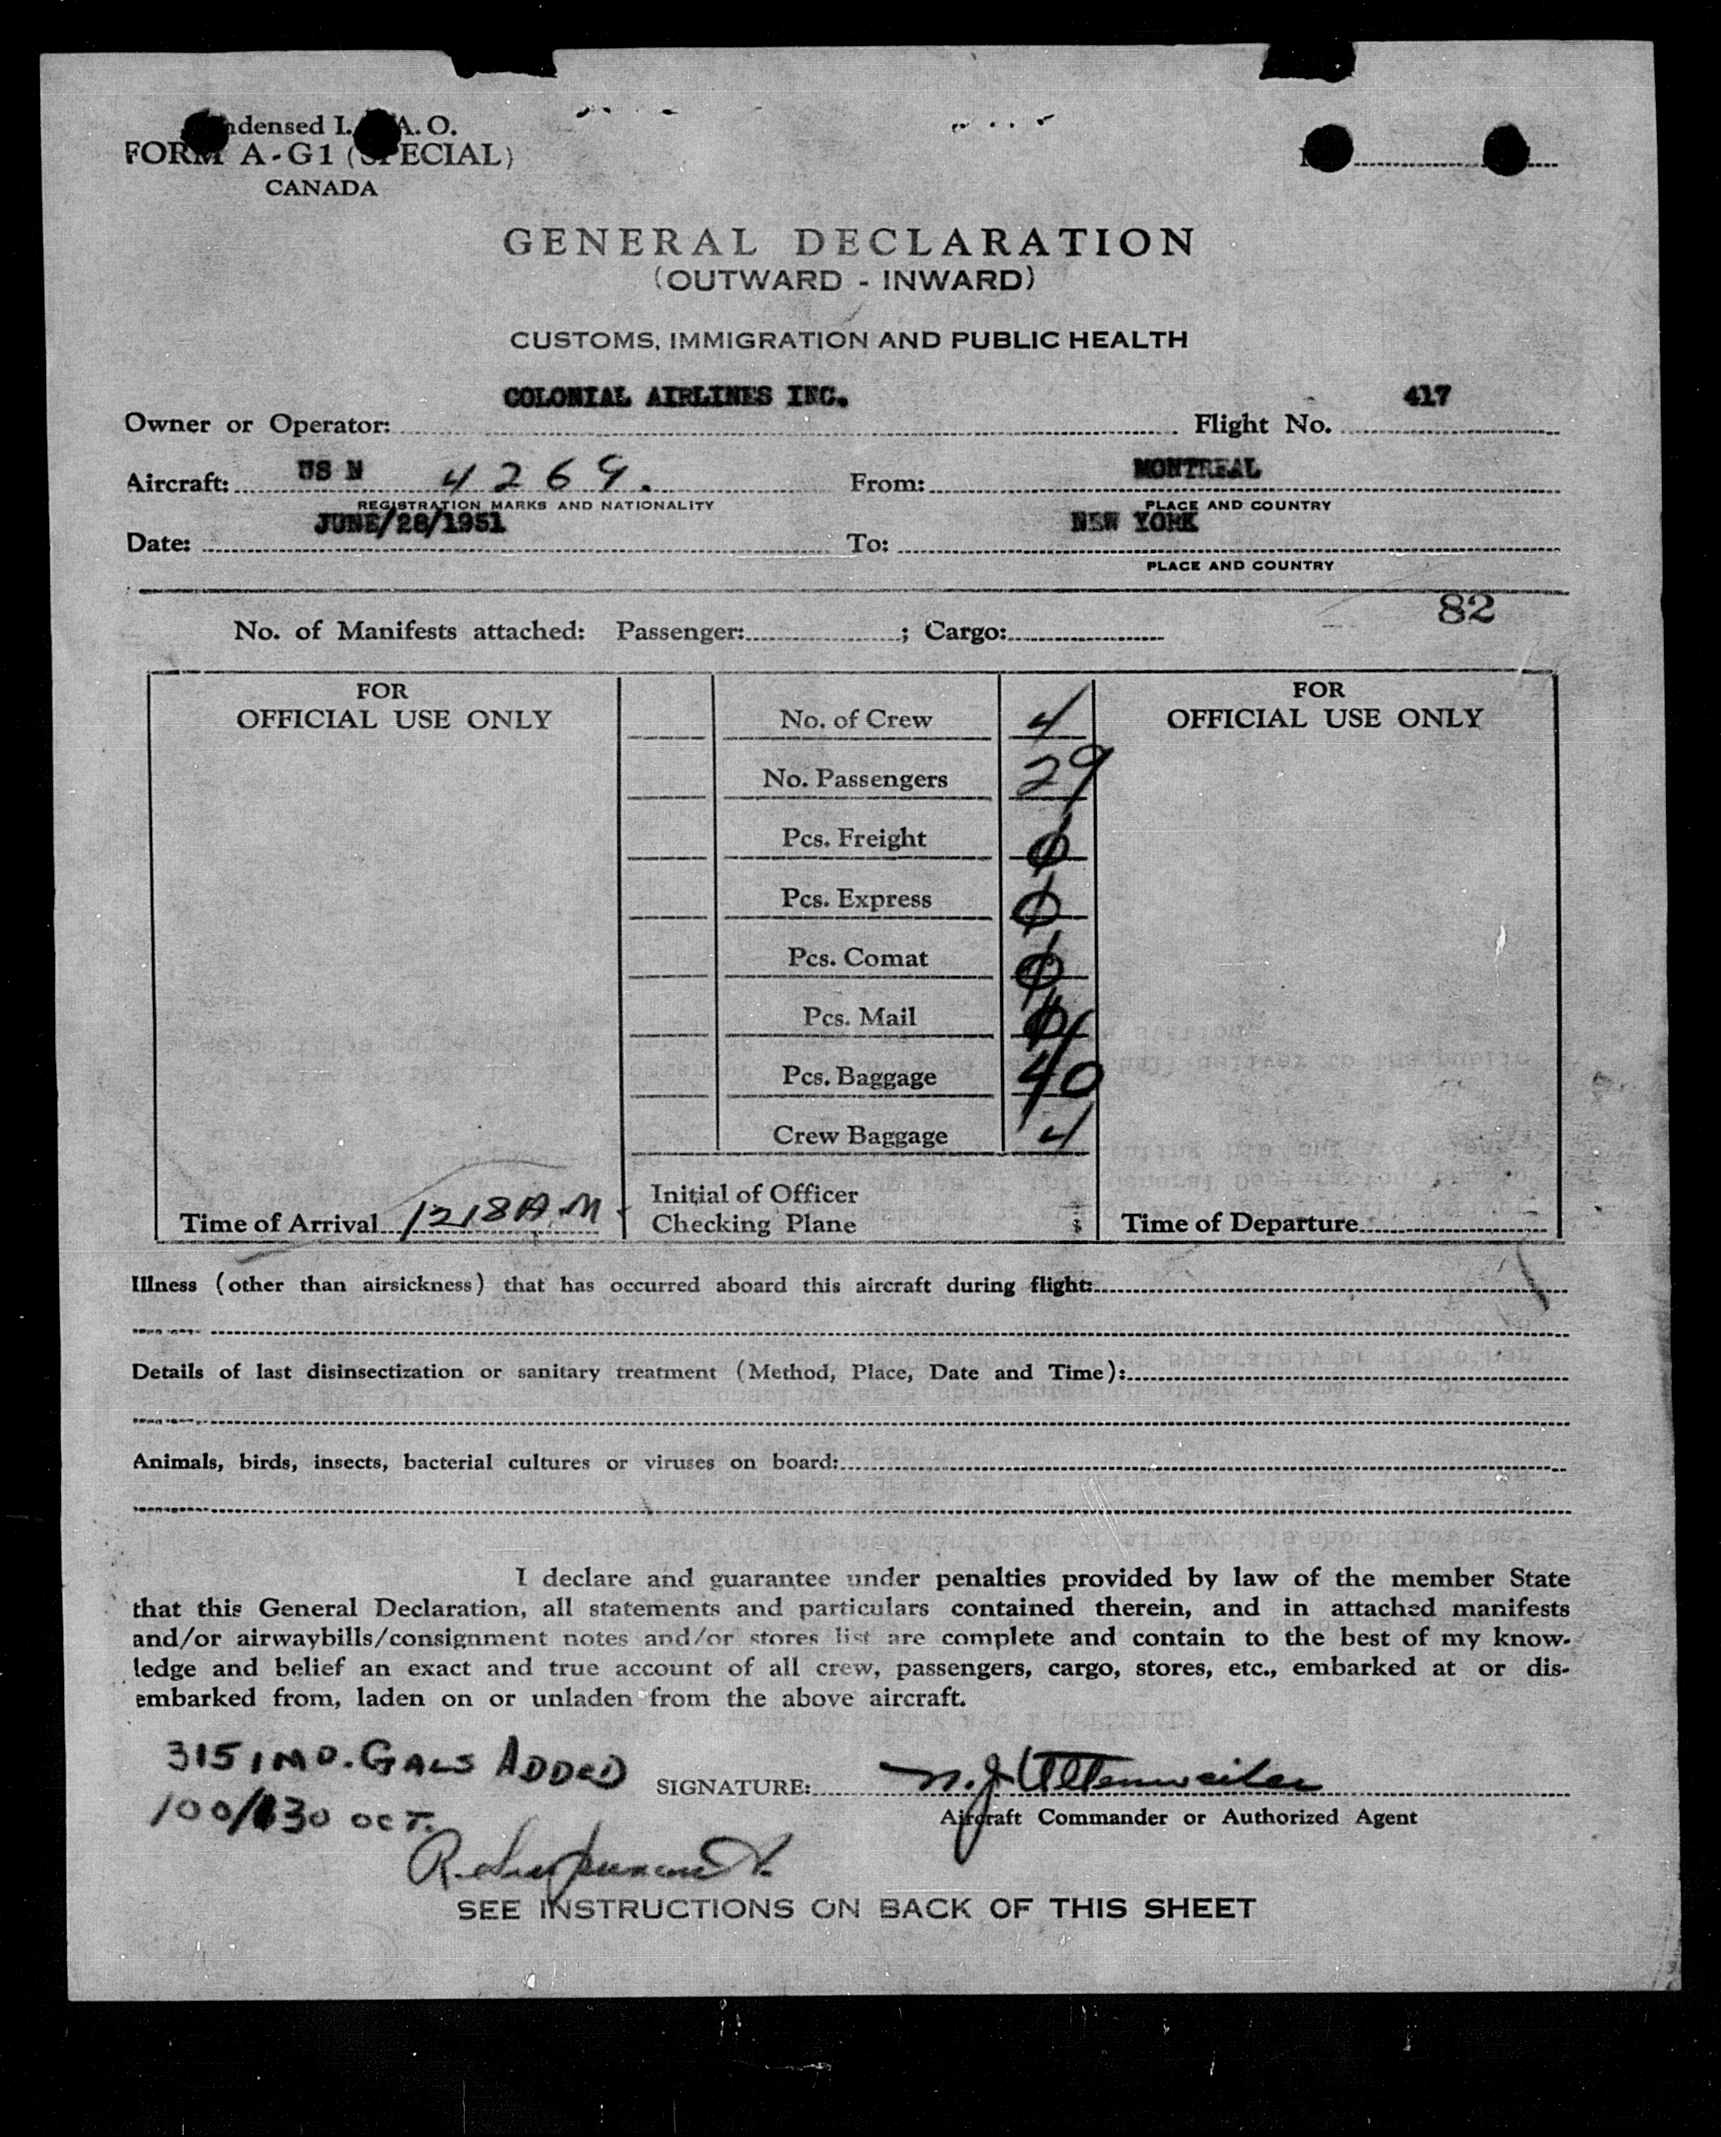 Condensed I.C.A.O.
FORM A-G1 (SPECIAL)
CANADA
GENERAL DECLARATION
(OUTWARD - INWARD)
CUSTOMS, IMMIGRATION AND PUBLIC HEALTH
COLONIAL AIRLINES INC. 417
Owner or Operator: Flight No.
Aircraft: US N 4269. From: MONTREAL
REGISTRATION MARKS AND NATIONALITY PLACE AND COUNTRY
JUNE/28/1951 NEW YORK
Date: To:
PLACE AND COUNTRY
82
No. of Manifests attached: Passenger: ; Cargo:
FOR
OFFICIAL USE ONLY
No. of Crew 4
No. Passengers 29
Pcs. Freight 0
Pcs. Express 0
Pcs. Comat 0
Pcs. Mail
Pcs. Baggage 40
Crew Baggage 4
FOR
OFFICIAL USE ONLY
Time of Arrival 1218 A.M.
Initial of Officer
Checking Plane
Time of Departure
Illness (other than airsickness) that has occurred aboard this aircraft during flight:
Details of last disinsectization or sanitary treatment (Method, Place, Date and Time):
Animals, birds, insects, bacterial cultures or viruses on board:
I declare and guarantee under penalties provided by law of the member State
that this General Declaration, all statements and particulars contained therein, and in attached manifests
and/or airwaybills/consignment notes and/or stores list are complete and contain to the best of my know-
ledge and belief an exact and true account of all crew, passengers, cargo, stores, etc., embarked at or dis-
embarked from, laden on or unladen from the above aircraft.
315 IMP. GALS ADDED
100/130 OCT.
SIGNATURE: N.J. Altenweiler
Aircraft Commander or Authorized Agent
SEE INSTRUCTIONS ON BACK OF THIS SHEET